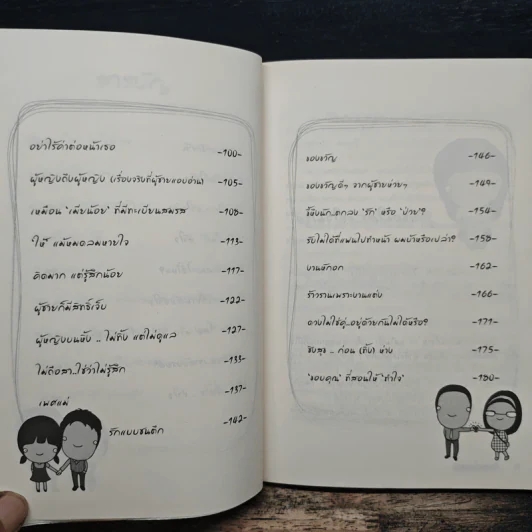 อย่าไร้ค่าต่อหน้าเธอ -100-
ผู้หญิงถึงผู้หญิง (เรื่องจริงที่ผู้ชายแอบอ่าน) -105-
เหมือน "เมียน้อย" ที่มีทะเบียนสมรส -108-
ให้ แม้หมดลมหายใจ -113-
คิดมาก แต่รู้สึกน้อย -117-
ผู้ชายก็มีสิทธิ์เจ็บ -122-
ผู้หญิงบนหิ้ง .. ไม่ทิ้ง แต่ไม่ดูแล -127-
ไม่ถือสา..ใช่ว่าไม่รู้สึก -133-
เพศแม่ -137-
รักแบบซนติก -142-
ของขวัญ -146-
ของขวัญดีๆ จากผู้ชายห่วยๆ -149-
ขี้หึงนัก..ตกลง "รัก" หรือ "บ้า"? -154-
รับไม่ได้ที่แฟนไปทำหน้า ผมบ้าหรือเปล่า? -158-
งานหักอก -162-
ร้าวรานเพราะงานแต่ง -166-
ดวงไม่ใช่คู่..อยู่ด้วยกันไม่ได้หรือ? -171-
ชิงสุข .. ก่อน (ทิ้ง) ห่าง -175-
"ขอบคุณ" ที่สอนให้ "ทำใจ" -180-